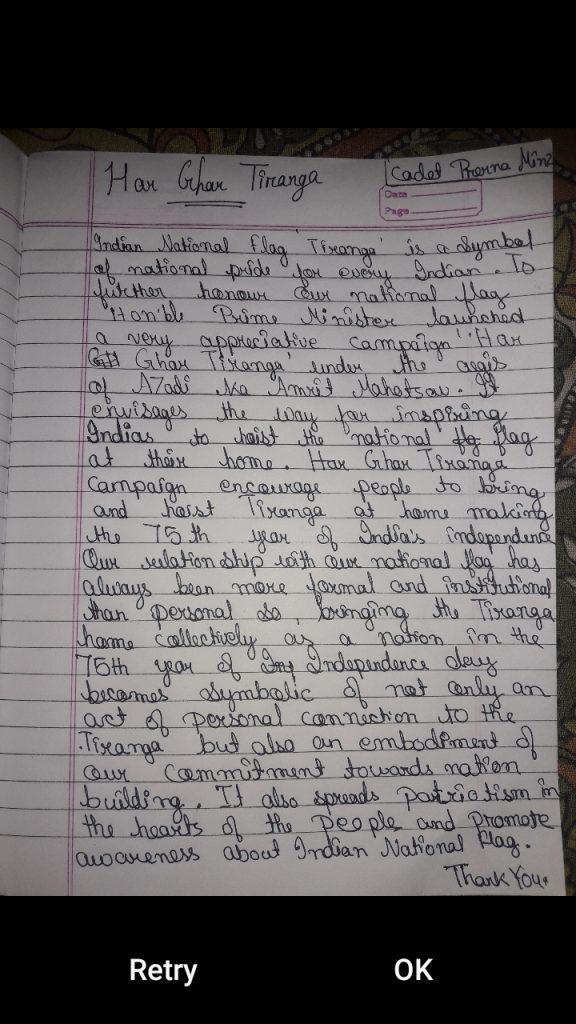 Har Ghar Tiranga
Cadet Prerna Minz
Date
Page
Indian National flag 'Tiranga' is a Symbol
of national pride for every Indian. To
further honour our national flag
"Hon'ble Prime Minister launched
a very appreciative campaign "Har
Ghar Tiranga' under the aegis
of Azadi Ka Amrit Mahotsav. It
envisages the way for inspiring
Indias to hoist the national flag
at their home. Har Ghar Tiranga
Campaign encourage people to bring
and hoist Tiranga at home making
the 75th year of India's independence
Our relationship with our national flag has
always been more formal and institutional
than personal so, bringing the Tiranga
home collectively as a nation in the
75th year of Independence day
becomes symbolic of not only an
act of personal connection to the
Tiranga but also an embodiment of
our commitment towards nation
building. It also spreads patriotism in
the hearts of the people and promote
awareness about Indian National flag.
Thank You.
Retry OK